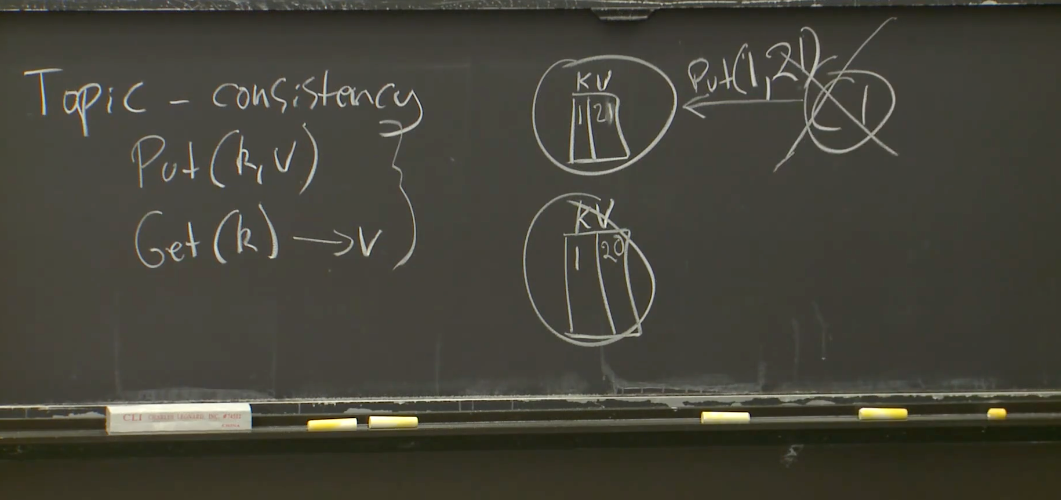 Topic - consistency
Put(k,v)
Get(k) → v
K V
1 21
Put(1,21)
C1
K V
1 20